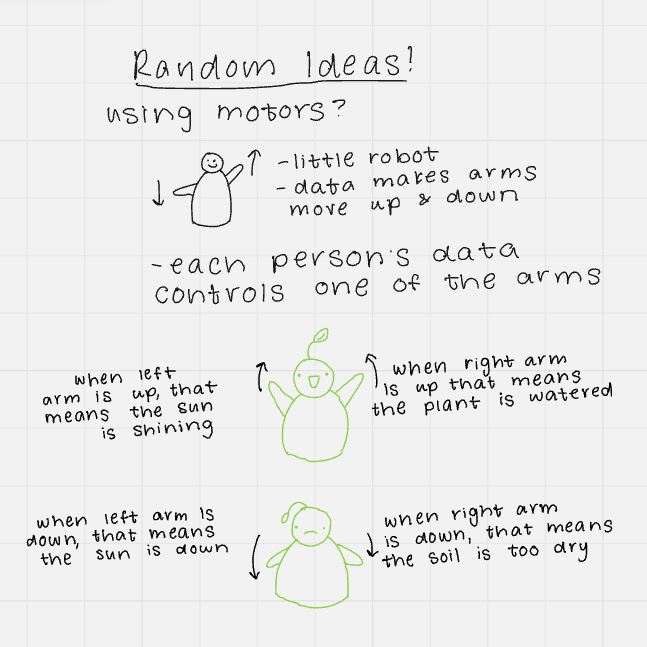 Random Ideas!
using motors?
-little robot
- data makes arms
move up & down
-each person's data
controls one of the arms
when left
arm is up, that
means the sun
is shining
when right arm
is up that means
the plant is watered
when left arm is
down, that means
the sun is down
when right arm
is down, that means
the soil is too dry